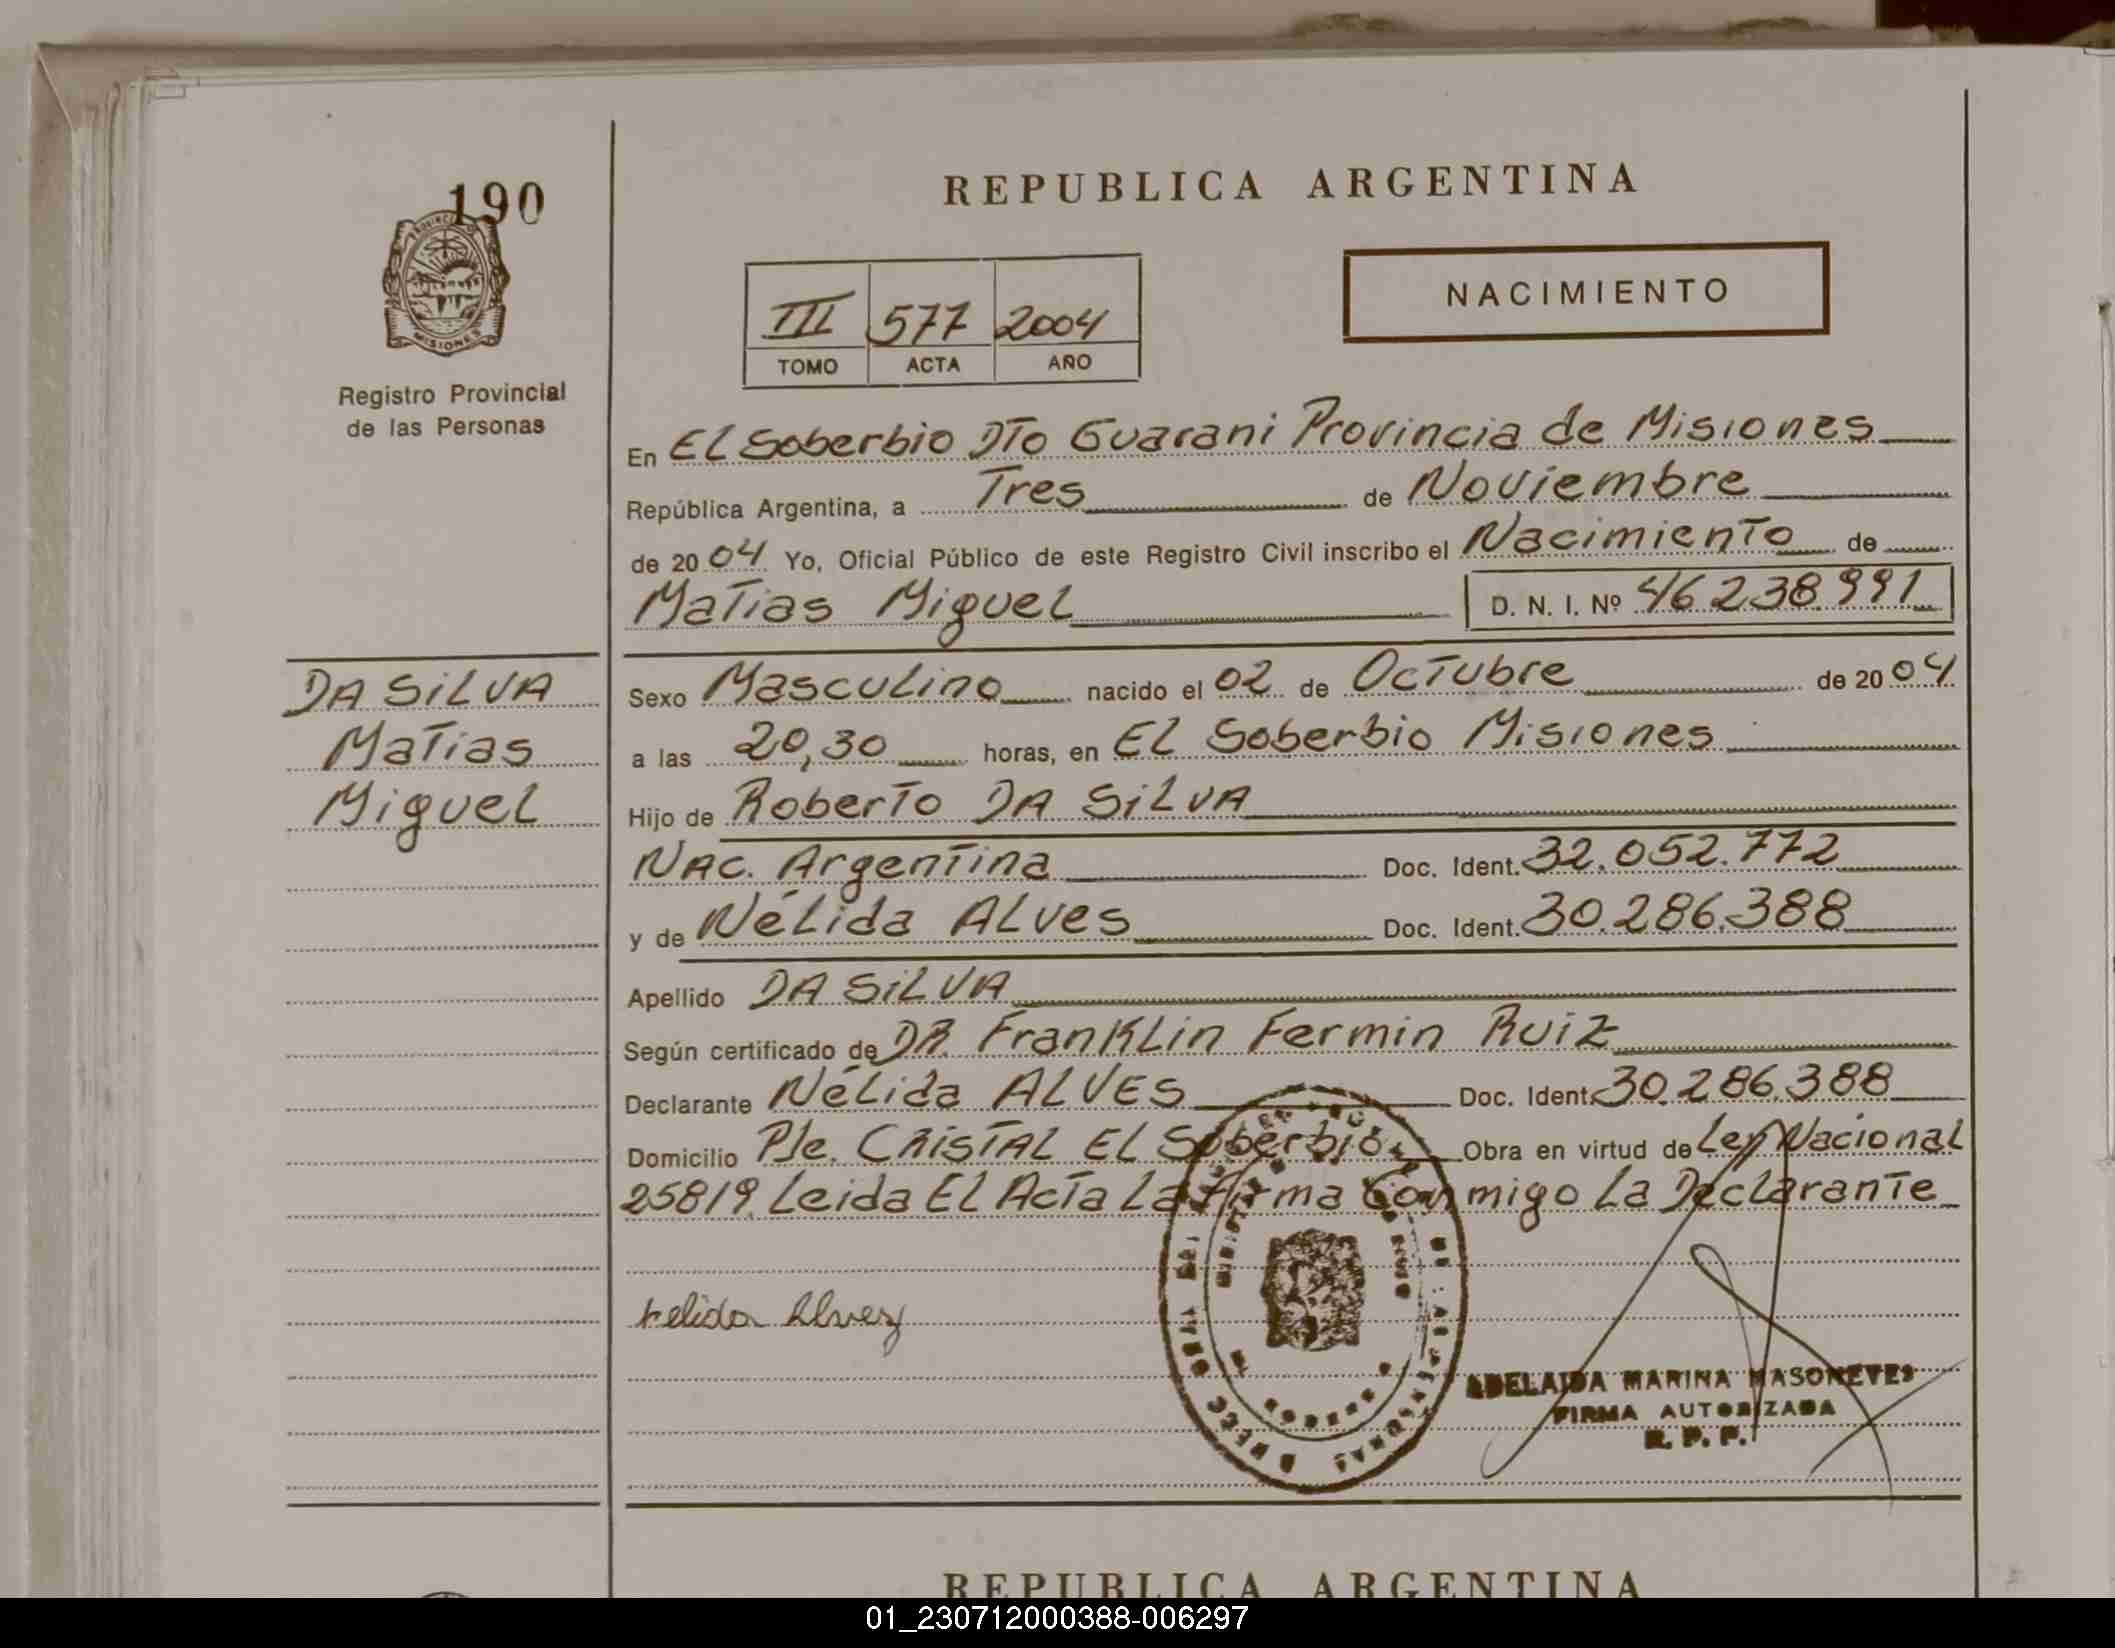 190
REPUBLICA ARGENTINA
NACIMIENTO
III 577 2004
TOMO ACTA AÑO
MISIONES
Registro Provincial
de las Personas
En El Soberbio Dto Guarani Provincia de Misiones
República Argentina, a Tres de Noviembre
de 20 04 Yo, Oficial Público de este Registro Civil inscribo el Nacimiento de
Matias Miguel D. N. I. Nº 46238991
DA SILVA
Matias
Miguel
Sexo Masculino nacido el 02 de Octubre de 20 04
a las 20,30 horas, en El Soberbio Misiones
Hijo de Roberto DA SILVA
Nac. Argentina Doc. Ident. 32.052.772
y de Nélida Alves Doc. Ident. 30.286.388
Apellido DA SILVA
Según certificado de DR Franklin Fermin Ruiz
Declarante Nélida ALVES Doc. Ident. 30.286.388
Domicilio Pje. CRISTAL El Soberbio Obra en virtud de Ley Nacional
25819 Leida El Acta La Firma Conmigo La Declarante
Nelida Alvez
ADELAIDA MARINA MASONEVES
FIRMA AUTORIZADA
R. P. P.
REPUBLICA ARGENTINA
01_230712000388-006297